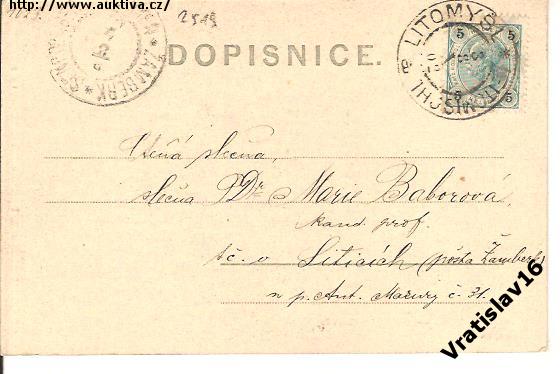 http://www.auktiva.cz/
2519
DOPISNICE.
LITOMYŠL * LEITOMISCHL
ŽAMBERK * SENFTENBERG
5 5
5 5
Ctěná slečna,
slečna PDr Marie Baborová,
kand. prof.
tč. v Liticích (pošta Žamberk)
u p. Ant. č. 31.
Vratislav16